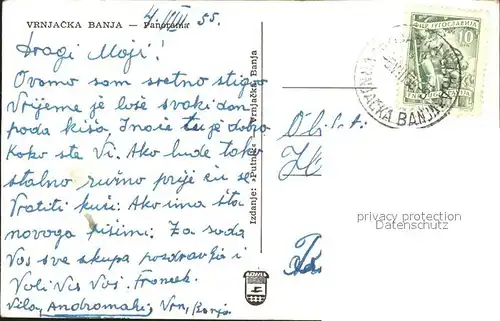 VRNJAČKA BANJA — Panorama
4. VIII 55.
Dragi Moji!
Ovamo sam sretno stigao
Vrijeme je loše svaki dan
pada kiša. Inače tu je dobro
Kako ste Vi. Ako bude tako
stalno ružno prije ću se
Vratiti kući. Ako ima šta
novoga pišimi. Za sada
Vas sve skupa pozdravlja i
Voli Vis Vaš. Francek.
Vila, Andromahi, Vrn. Banja
Izdanje: »Putnik« Vrnjačka Banja
ФНР ЈУГОСЛАВИЈА
10
VRNJAČKA BANJA
Ob
privacy protection
Datenschutz